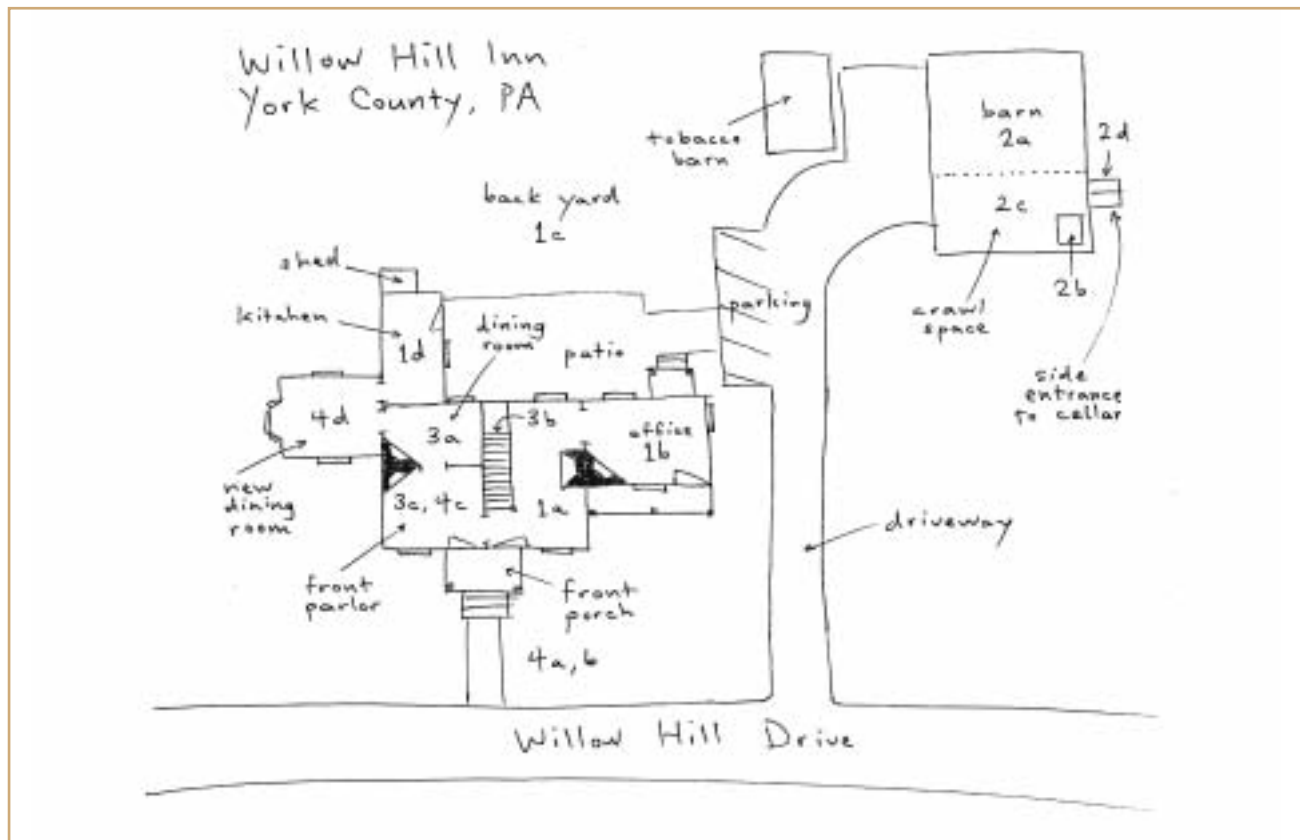 Willow Hill Inn
York County, PA
tobacco
barn
barn
2a
2d
2c
2b
crawl
space
side
entrance
to cellar
back yard
1c
shed
kitchen
1d
dining
room
patio
parking
4d
3a
3b
office
1b
new
dining
room
3c, 4c
1a
front
parlor
front
porch
driveway
4a, b
Willow Hill Drive